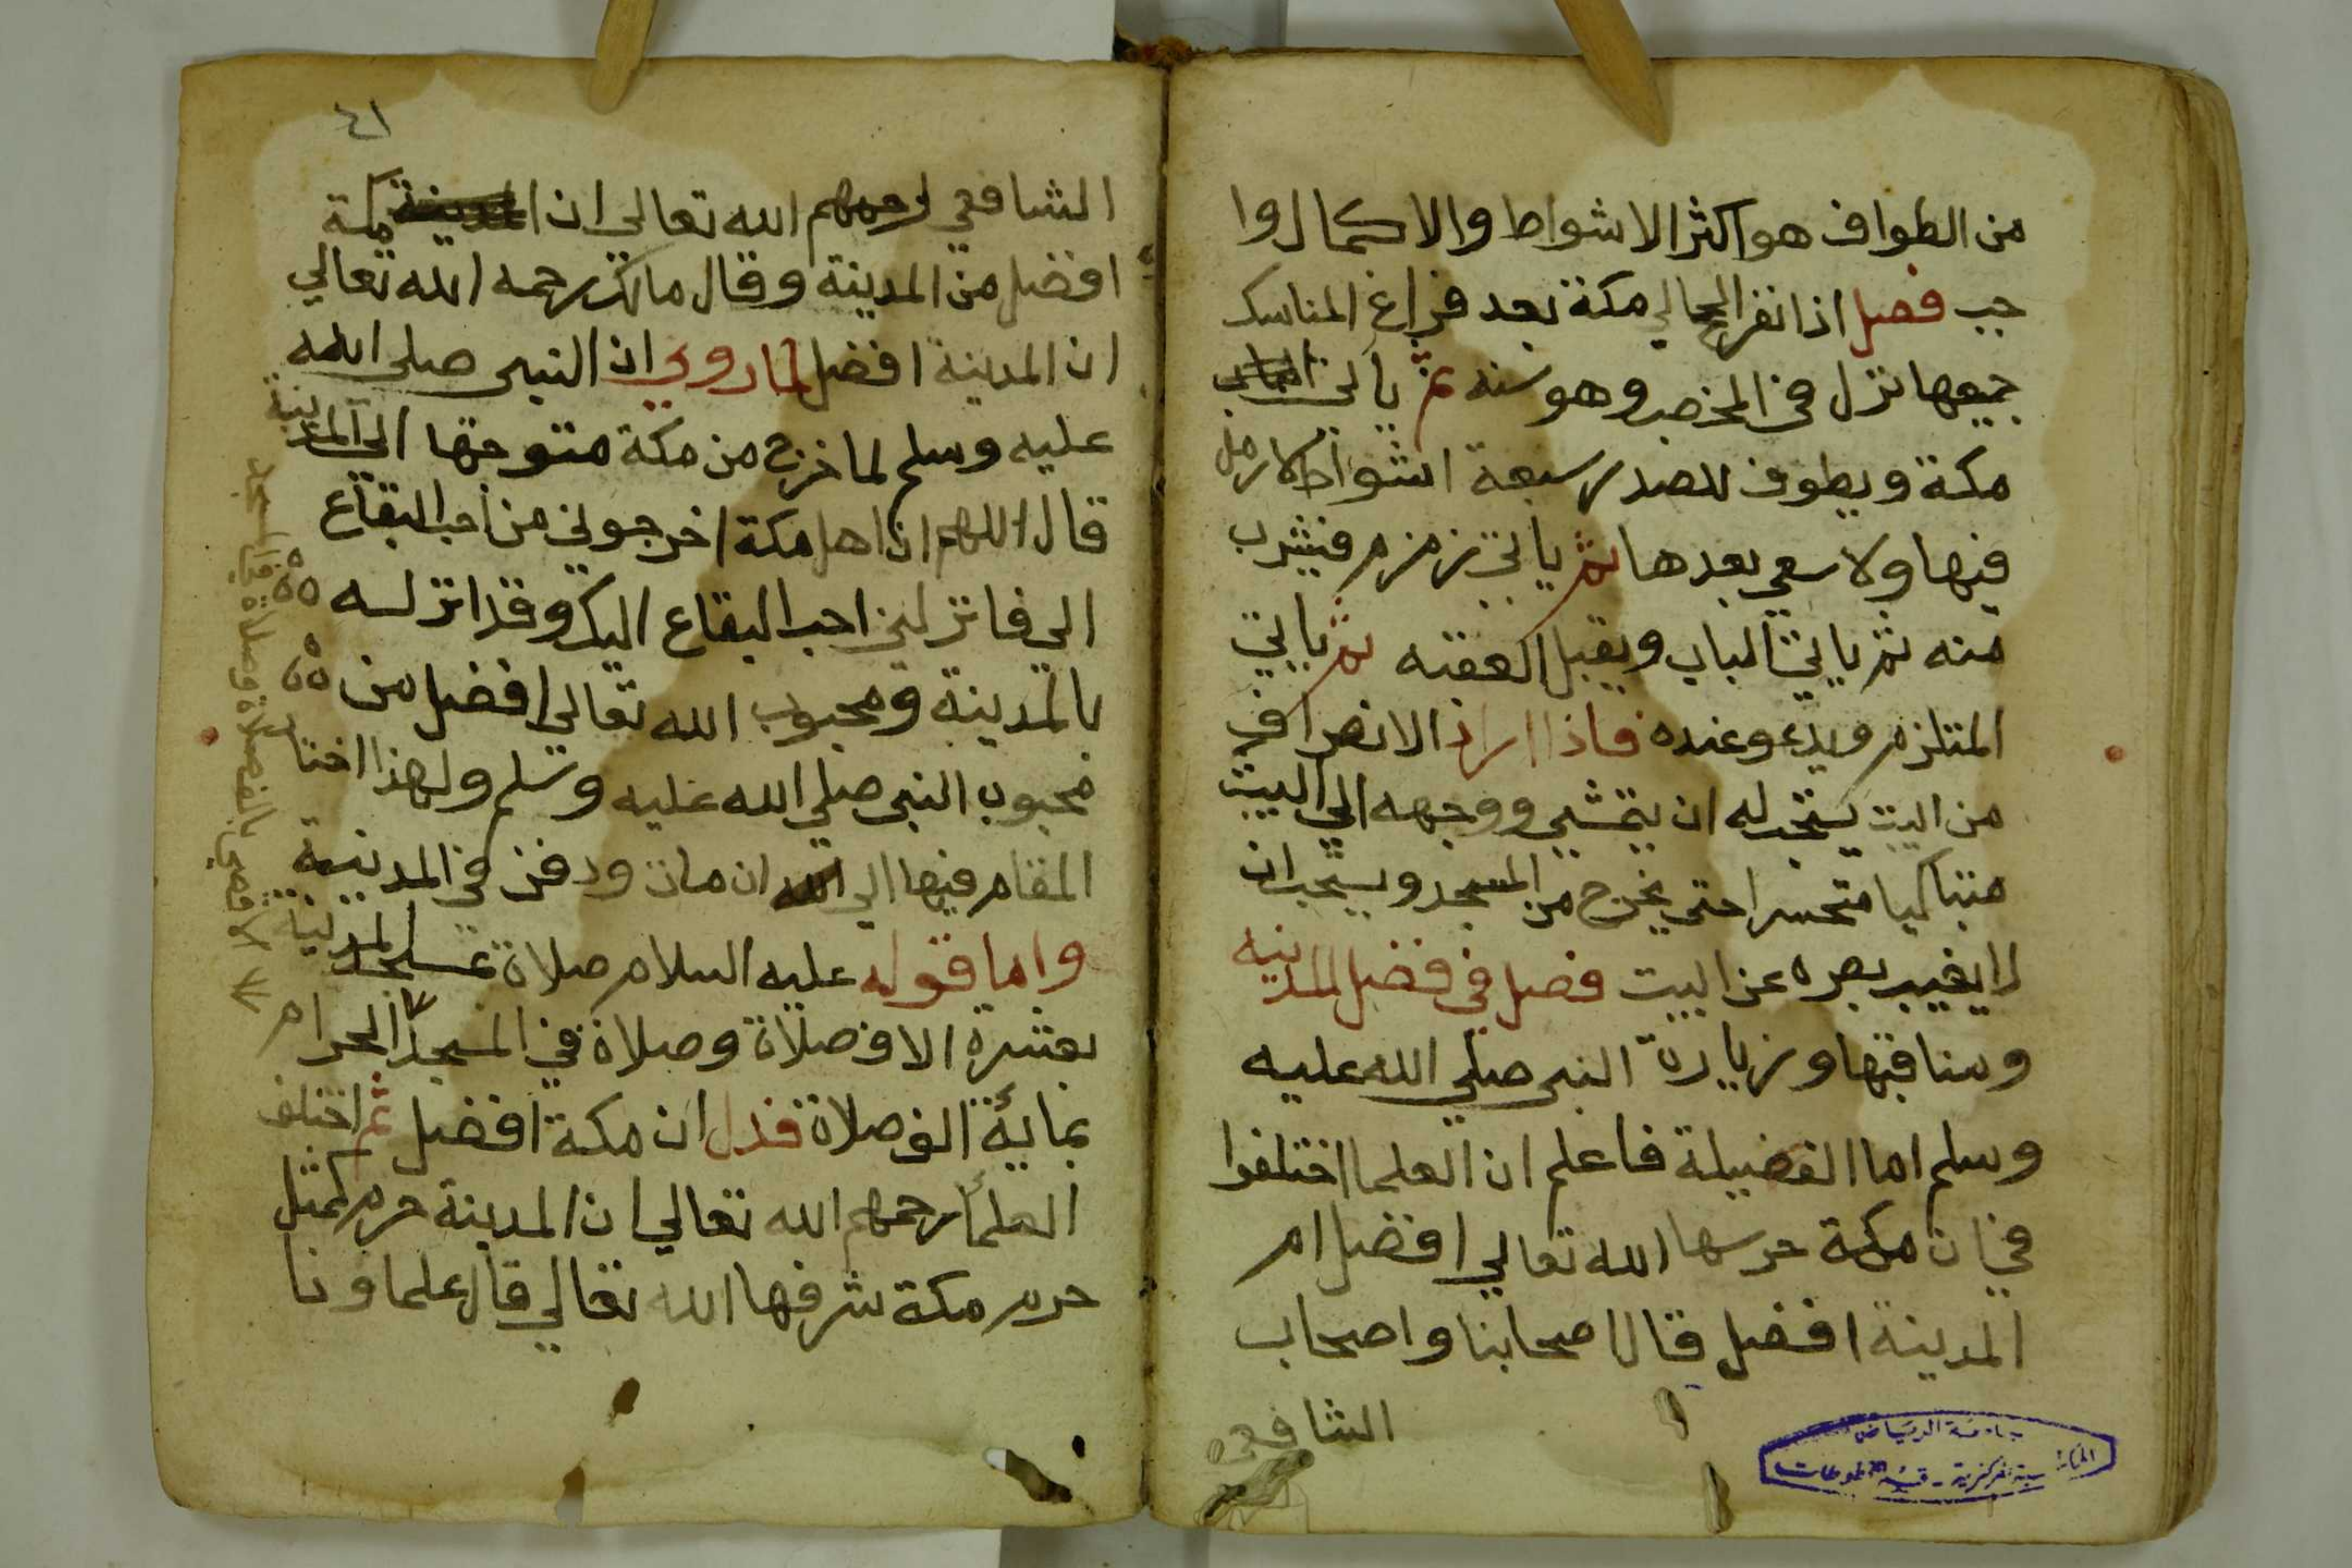 من الطواف هو اكثر الاشواط والاكمال وا
جب فصل اذا نفر الحجالي مكة بعد فراغ المناسك
جميعها نزل في المحصب وهو سنه ثم ياتي
مكة ويطوف للصدر سبعة اشواط لا رمل
فيها ولا سعي بعدها ثم ياتي زمزم فيشرب
منه ثم ياتي الباب ويقبل العقبه ثم ياتي
الملتزم ويدعو عنده فاذا اراد الانصراف
من البيت يستحب له ان يتمشي ووجهه الي البيت
متباكيا متحسرا حتى يخرج من المسجد ويستحب ان
لا يغيب بصره عن البيت فصل في فضل المدينه
ومنافبها وزيارة النبي صلي الله عليه
وسلم اما الفضيلة فاعلم ان العلما اختلفوا
في ان مكة حرسها الله تعالي افضل ام
المدينة افضل قال اصحابنا واصحاب
الشافعي
جامعة الرياض
المكتبة المركزية - قسم المخطوطات
٤١
الشافعي رحمهم الله تعالى ان المدينة مكة
افضل من المدينة وقال مالك رحمه الله تعالي
ان المدينة افضل لما روي ان النبي صلى الله
عليه وسلم لما خرج من مكة متوجها الي المدينة
قال اللهم ان اهل مكة اخرجوني من احب البقاع
الي فانزلني احب البقاع اليك وقد انزله
بالمدينة ومحبوب الله تعالي افضل من
محبوب النبي صلي الله عليه وسلم ولهذا اختار
المقام فيها الي ان مات ودفن في المدينة
واما قوله عليه السلام صلاة بمسجد المدينة
بعشرة الاف صلاة وصلاة في المسجد الحرام
بماية الف صلاة فدل ان مكة افضل ثم اختلف
العلما رحمهم الله تعالي ان المدينة حرم كمثل
حرم مكة شرفها الله تعالي قال علماونا
الاقصي بالف صلاة وصلاة في المسجد